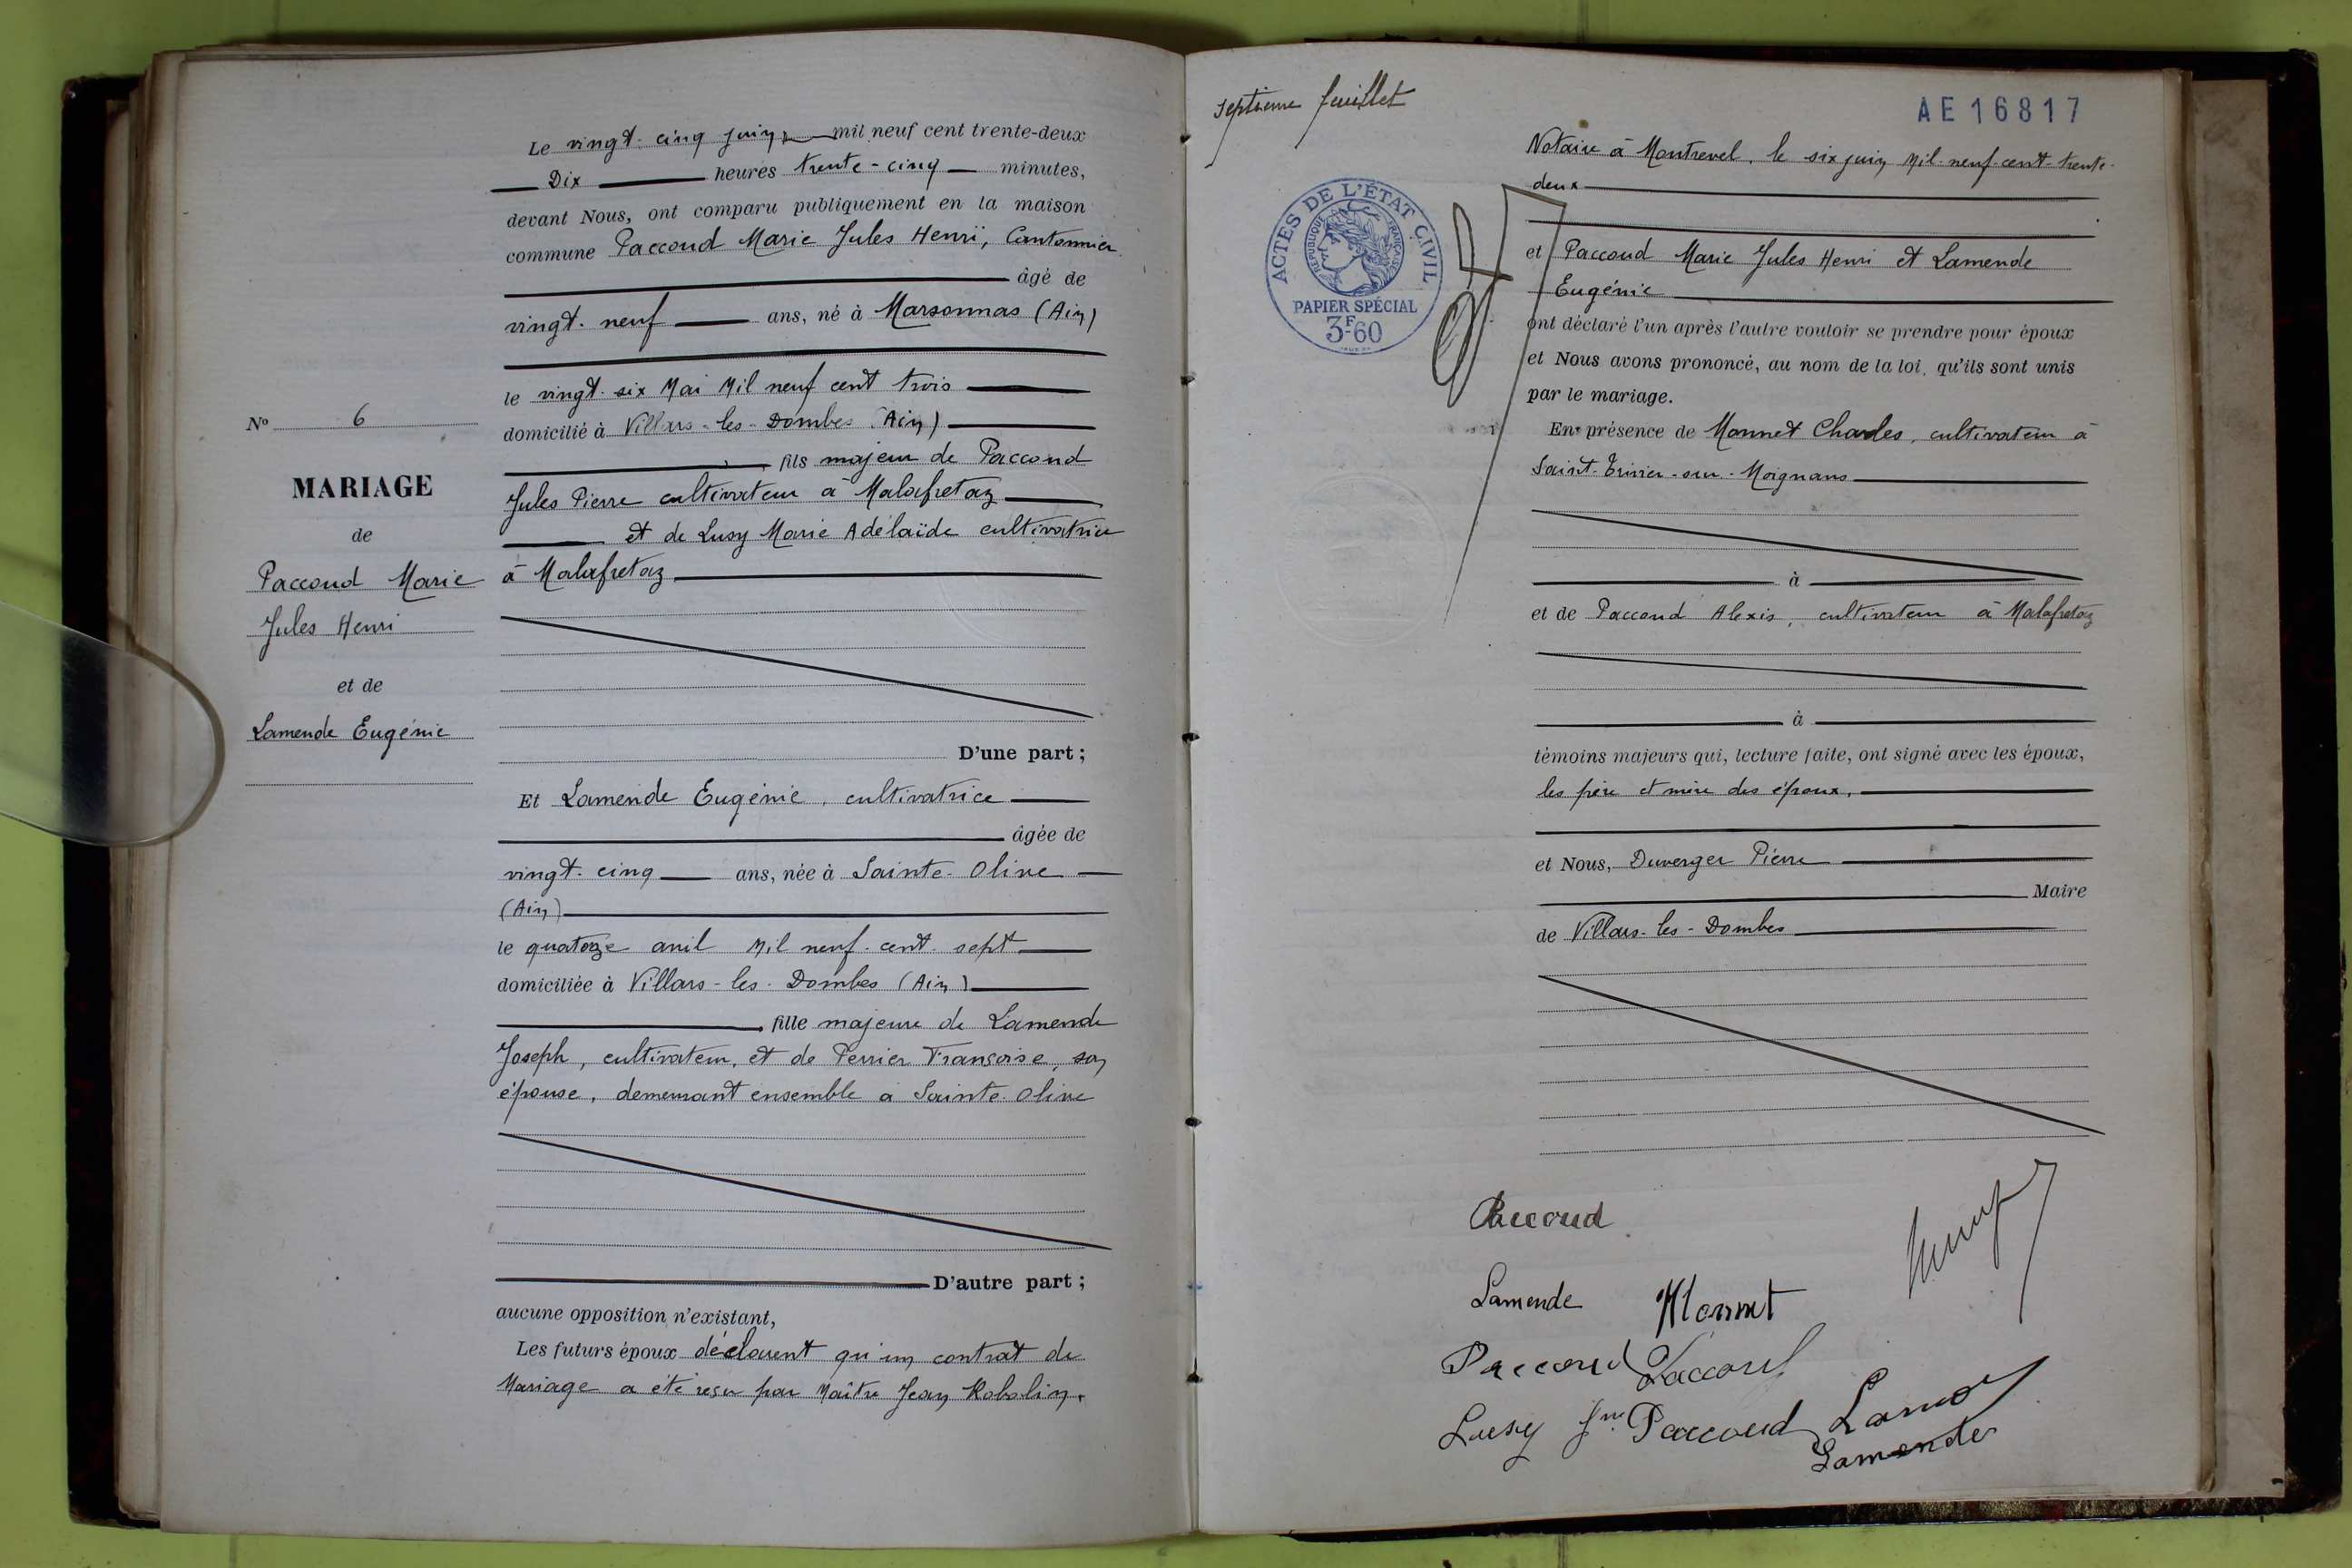 Le vingt-cinq juin mil neuf cent trente-deux
Dix heures trente-cinq minutes,
devant Nous, ont comparu publiquement en la maison
commune Paccoud Marie Jules Henri, Cantonnier
âgé de
vingt-neuf ans, né à Marsonnas (Ain)
le vingt-six Mai Mil neuf cent trois
domicilié à Villars-les-Dombes (Ain)
fils majeur de Paccoud
Jules Pierre cultivateur à Malafretaz
et de Lusy Marie Adélaïde cultivatrice
à Malafretaz
D'une part ;
Et Lamende Eugénie, cultivatrice
âgée de
vingt-cinq ans, née à Sainte-Olive
(Ain)
le quatorze avril Mil neuf-cent-sept
domiciliée à Villars-les-Dombes (Ain)
fille majeure de Lamende
Joseph, cultivateur, et de Perrier Françoise, son
épouse, demeurant ensemble à Sainte-Olive
D'autre part ;
aucune opposition n'existant,
Les futurs époux déclarent qu'un contrat de
Mariage a été reçu par Maître Jean Robolin,
No 6
MARIAGE
de
Paccoud Marie
Jules Henri
et de
Lamende Eugénie
septième feuillet
AE16817
ACTES DE L'ÉTAT CIVIL
RÉPUBLIQUE FRANÇAISE
PAPIER SPÉCIAL
3F-60
Notaire à Montrevel, le six juin Mil-neuf-cent-trente-
deux
et Paccoud Marie Jules Henri et Lamende
Eugénie
ont déclaré l'un après l'autre vouloir se prendre pour époux
et Nous avons prononcé, au nom de la loi, qu'ils sont unis
par le mariage.
En présence de Monnet Charles, cultivateur à
Saint-Trivier-sur-Moignans
à
et de Paccoud Alexis, cultivateur à Malafretaz
à
témoins majeurs qui, lecture faite, ont signé avec les époux,
les père et mère des époux,
et Nous, Duverger Pierre
Maire
de Villars-les-Dombes
Paccoud
Lamende Monnet
Paccoud Paccoud
Lusy fme Paccoud
Lamende